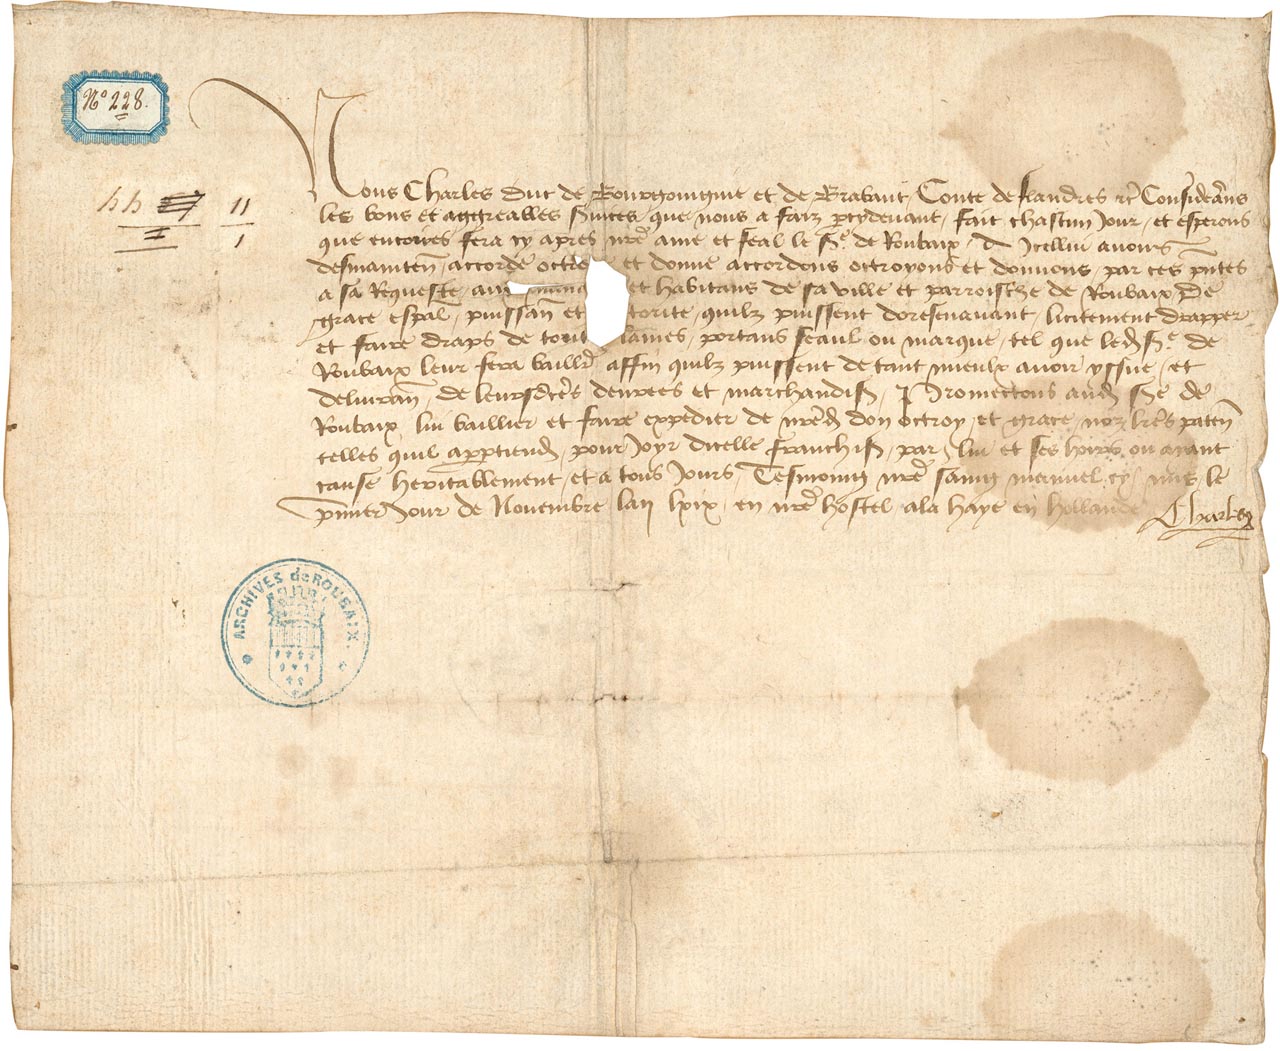 N° 228.
Nous Charles Duc de Bourgoingne et de Brabant, Conte de flandres etc Considerans
les bons et aggreables services que nous a faiz par cydevant, fait chascun Jour, et esperons
que encoires fera cy apres nre ame et feal le sr de Roubaix, A Icellui avons
desmainten accordé octro et donné accordons octroyons et donnons, par ces pntes
a sa Requeste, aux mana et habitans de sa ville et parroisse de Roubaix De
grace espal, puissan et torité, quilz puissent doresenavant, licitement drapper
et faire draps de tout laines, portans seaul ou marque, tel que led sr de
Roubaix leur fera baillr affin quilz puissent de tant mieulx avoir yssue, et
delivran, de leursdres denrees et marchandis, Promectons aud sr de
Roubaix, lui baillier et faire expedier de nred don octroy, et grace, noz lres paten
telles quil appertiend, pour Joyr dicelle franchis, par lui et ses hoirs ou ayant
cause heritablement, et a tous Jours, Tesmoing nre saing manuel cy mis le
pmier Jour de Novembre lan lxix, en nre hostel a la haye en hollande Charles
ARCHIVES de ROUBAIX